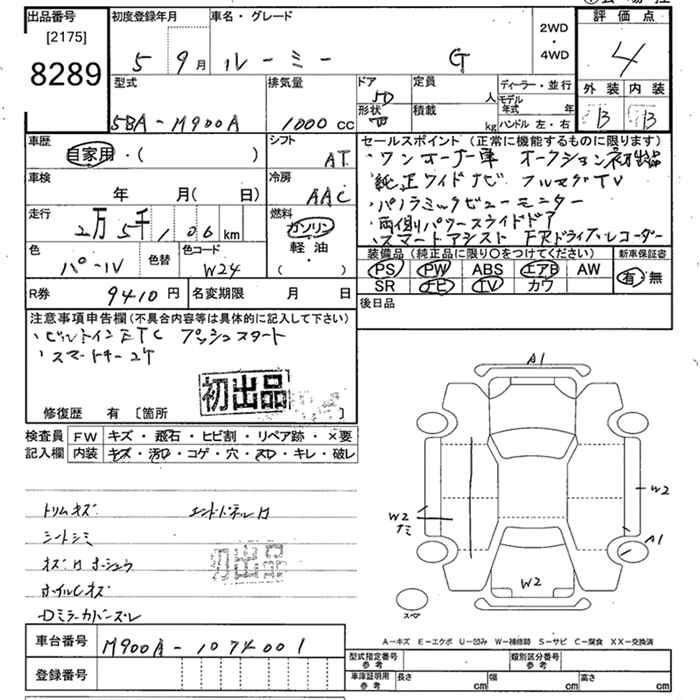 出品番号
[2175]
8289
初度登録年月
5 9月
車名・グレード
ルーミー G
2WD
・
4WD
評価点
4
外装 内装
B B
型式
5BA-M900A
排気量
1000 cc
ドア
5D
形状
定員
人
積載
kg
ディーラー・並行
モデル年式 年
ハンドル 左・右
車歴
自家用・( )
シフト
AT
車検
年 月( 日)
冷房
AAC
走行
2万5千106km
燃料
ガソリン
軽油
( )
色
パール
色替
色コード
W24
R券
9410円
名変期限 月 日
セールスポイント(正常に機能するものに限ります)
・ワンオーナー車 オークション初出品
・純正ワイドナビ フルセグTV
・パノラミックビューモニター
・両側パワースライドドア
・スマートアシスト FRドライブレコーダー
装備品(純正品に限り○をつけてください)
PS PW ABS エアB AW
SR ナビ TV カワ
新車保証書
有・無
後日品
注意事項申告欄(不具合内容等は具体的に記入して下さい)
・ビルトインETC プッシュスタート
・スマートキー2ケ
初出品
修復歴 有 〔箇所 〕
検査員記入欄
FW キズ・飛石・ヒビ割・リペア跡・×要
内装 キズ・汚レ・コゲ・穴・スレ・キレ・破レ
トリムキズ
シートシミ
ホイルCキズ
Dミラーカバーズレ
初出品
A1
W2
W2
ナミ
A1
W2
スペア
A-キズ E-エクボ U-凹み W-補修跡 S-サビ C-腐食 XX-交換済
車台番号
M900A-1074001
登録番号
型式指定番号
参考
類別区分番号
参考
車庫証明用
参考
長さ cm
幅 cm
高さ cm